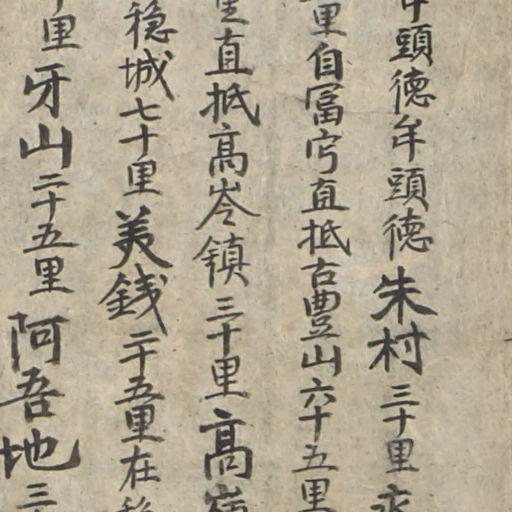 頭德牟頭德朱村三十里永
里自冨寧直抵古豐山六十五里
里直抵高岺镇三十里高嶺
穏城七十里美錢二十五里在
里牙山二十五里阿吾地三